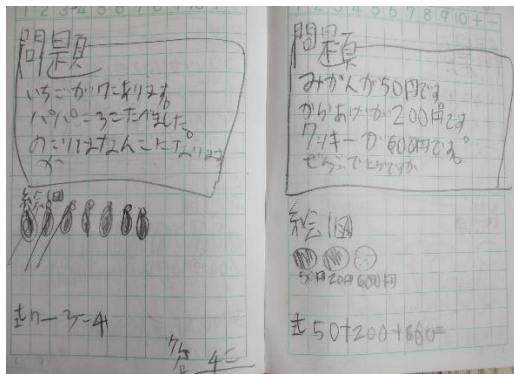 問題
いちごが7こあります。
パパが三こたべました。
のこりはなんこになりますか
絵図
式7-3=4
答 4こ
問題
みかんが50円です
からあげが200円です
クッキーが600円です。
ぜんぶで
絵図
50円 20円 600円
式 50+200+600=